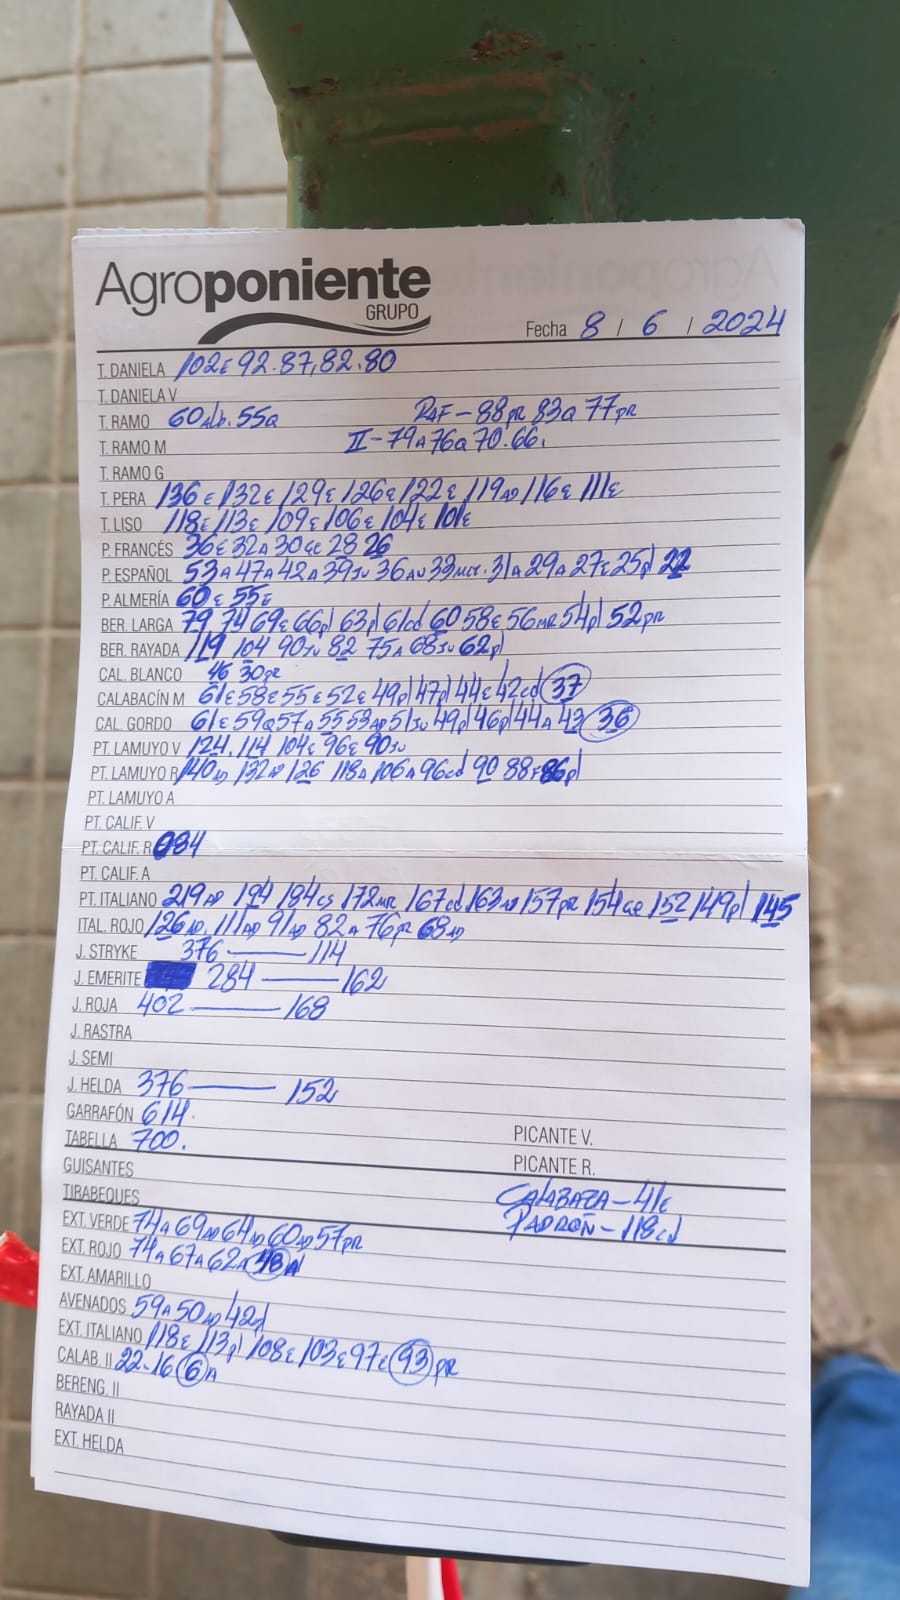 Agroponiente
GRUPO
Fecha 8 / 6 / 2024
T. DANIELA 102E 92. 87, 82. 80
T. DANIELA V
T. RAMO 60Alb. 55Q RAF - 88PR 83Q 77PR
T. RAMO M II - 79A 76Q 70. 66.
T. RAMO G
T. PERA 136E 132E 129E 126E 122E 119AD 116E 111E
T. LISO 118E 113E 109E 106E 104E 101E
P. FRANCÉS 36E 32A 30GE 28 26
P. ESPAÑOL 53A 47A 42A 39JU 36AU 33MCR. 31A 29A 27E 25pl 22
P. ALMERÍA 60E 55E
BER. LARGA 79 74 69E 66pl 63pl 61cd 60 58E 56MR 54pl 52PR
BER. RAYADA 119 104 90JU 82 75A 68JU 62pl
CAL. BLANCO 46 30PR
CALABACÍN M 61E 58E 55E 52E 49pl 47pl 44E 42cd 37
CAL. GORDO 61E 59Q 57A 55 53AD 51JU 49pl 46pl 44A 43 36
PT. LAMUYO V 124. 114 104E 96E 90JU
PT. LAMUYO R 140AD 132AD 126 118A 106A 96cd 90 88F 86pl
PT. LAMUYO A
PT. CALIF. V
PT. CALIF. R 84
PT. CALIF. A
PT. ITALIANO 219AD 194 184CS 172MR 167cd 163AD 157PR 154GE 152 149pl 145
ITAL. ROJO 126AD. 111AD 91AD 82A 76PR 68AD
J. STRYKE 376 —— 114
J. EMERITE 284 —— 162
J. ROJA 402 —— 168
J. RASTRA
J. SEMI
J. HELDA 376 —— 152
GARRAFÓN 614.
TABELLA 700. PICANTE V.
GUISANTES PICANTE R.
TIRABEQUES CALABAZA - 41E
EXT. VERDE 74A 69AD 64AD 60AD 57PR PADRÓN - 118cd
EXT. ROJO 74A 67A 62A 48A
EXT. AMARILLO
AVENADOS 59A 50AD 42pl
EXT. ITALIANO 118E 113pl 108E 103E 97E 93PR
CALAB. II 22-16 6A
BERENG. II
RAYADA II
EXT. HELDA